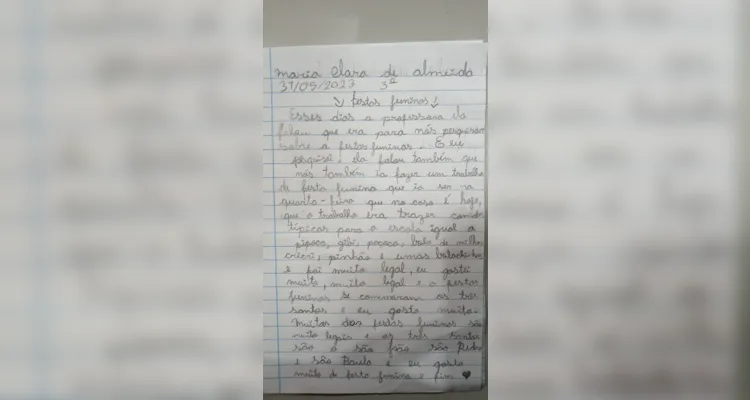 Maria Clara de Almeida
31/05/2023 3º
festas juninas
Esses dias a professora Ia
falou que era para nós pesquisar
sobre a festas juninas. E eu
pesquisei. ela falou também que
nós também ia fazer um trabalho
de festa junina que ia ser na
quarta-feira que no caso é hoje,
que o trabalho era trazer comidas
típicas para a escola igual a
pipoca, paçoca, bolo de milho,
pinhão e umas
e foi muito legal, eu gostei
muito, muito legal e a festas
juninas se comemoram os três
santos e eu gosto muito.
muitas das festas juninas são
muito legais e os três santos
são o são João são Pedro
e são Paulo e eu gosto
muito de festa junina e fim